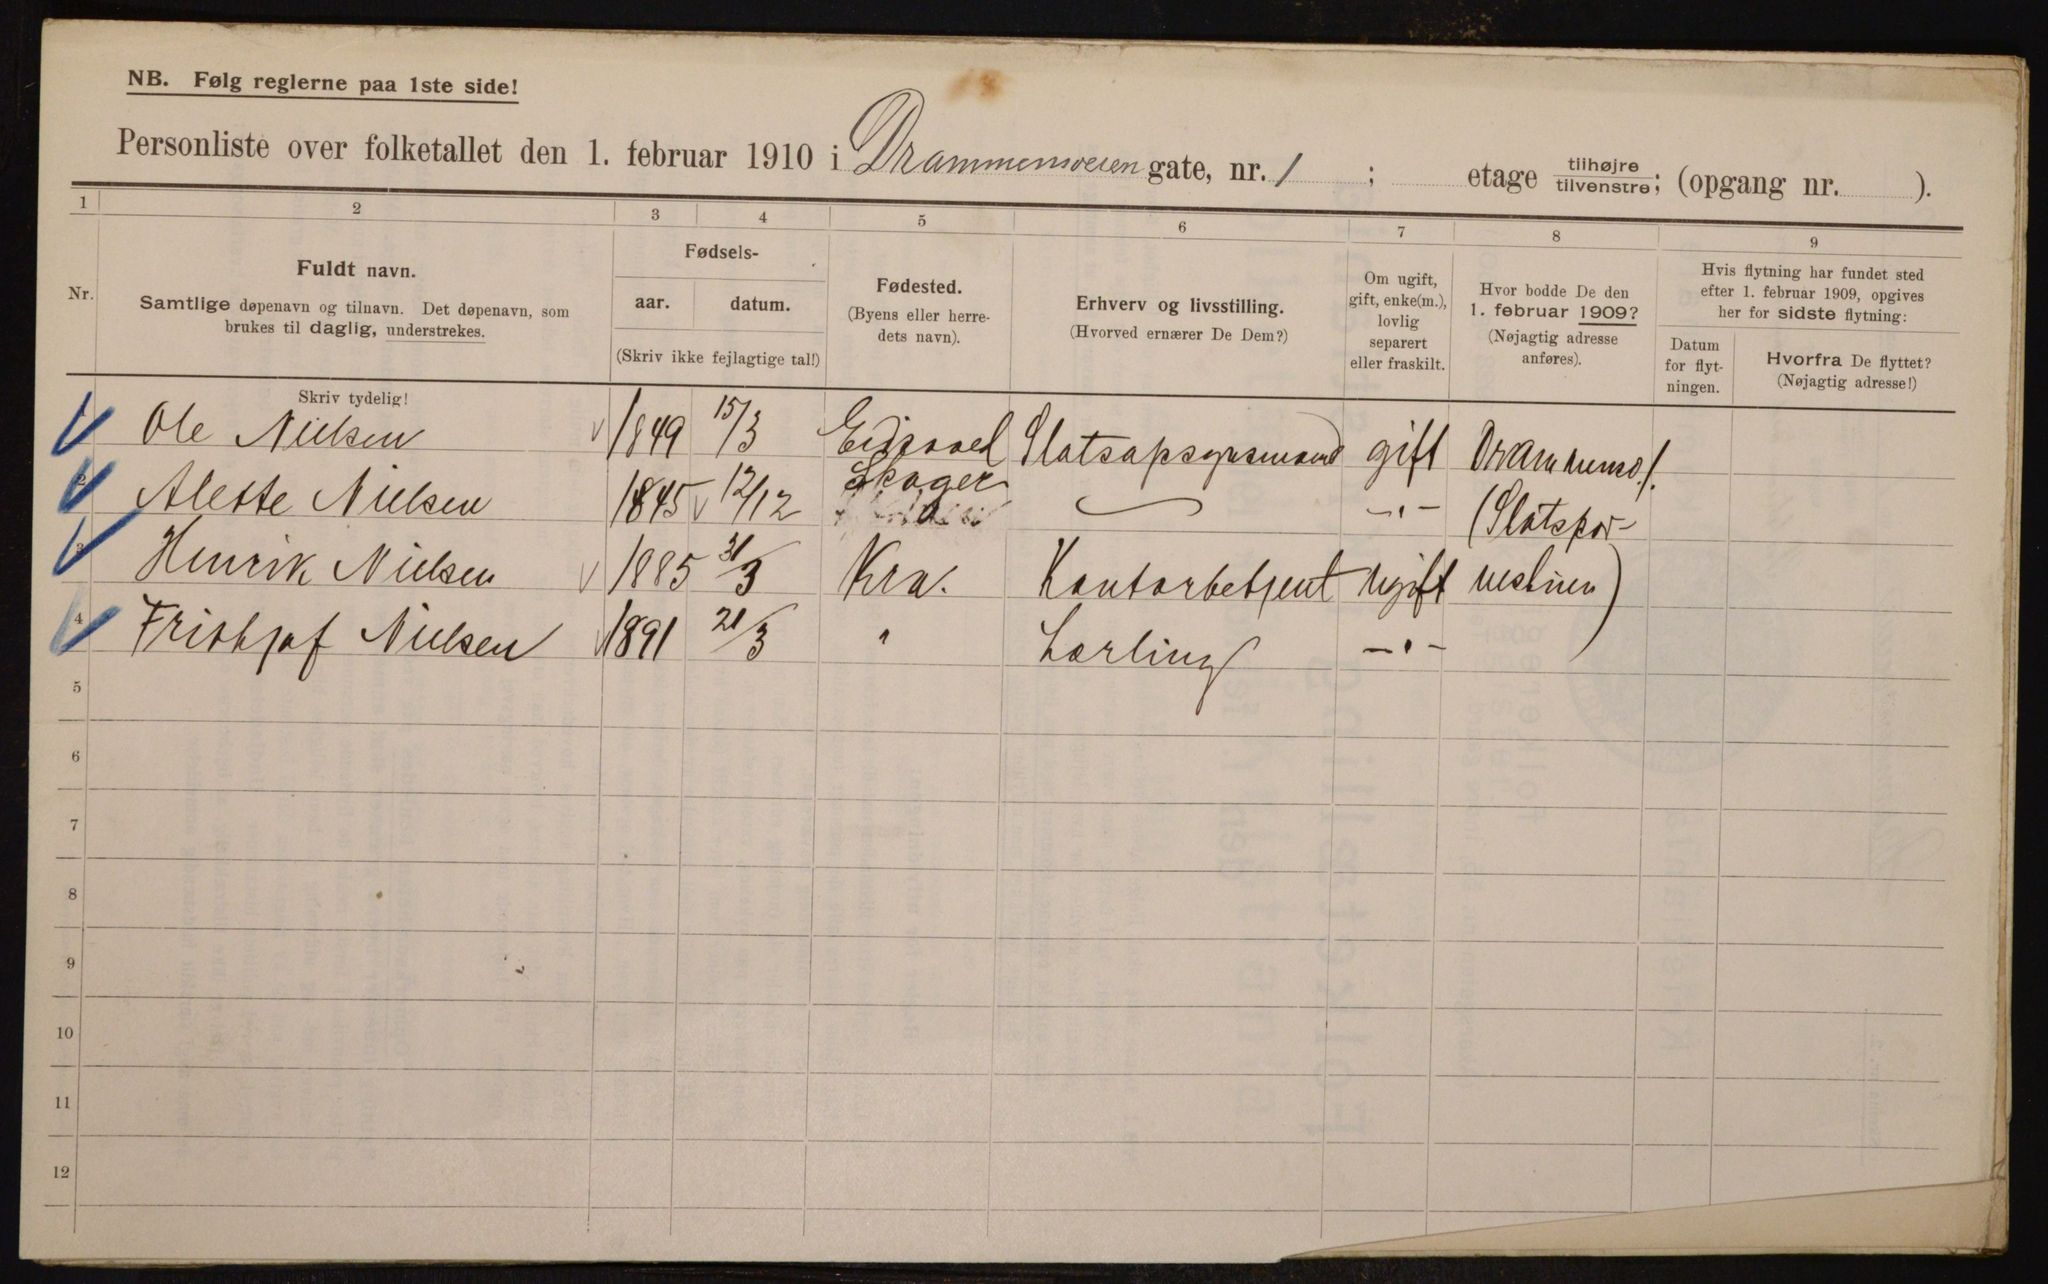 NB. Følg reglerne paa 1ste side!
Personliste over folketallet den 1. februar 1910 i Drammensveien gate, nr. 1 ; etage tilhøjre tilvenstre; (opgang nr. ).
1 2 3 4 5 6 7 8 9
Nr.
Fuldt navn.
Samtlige døpenavn og tilnavn. Det døpenavn, som
brukes til daglig, understrekes.
Fødsels-
aar. datum.
(Skriv ikke fejlagtige tal!)
Fødested.
(Byens eller herre-
dets navn).
Erhverv og livsstilling.
(Hvorved ernærer De Dem?)
Om ugift,
gift, enke(m.),
lovlig
separert
eller fraskilt.
Hvor bodde De den
1. februar 1909?
(Nøjagtig adresse
anføres).
Hvis flytning har fundet sted
efter 1. februar 1909, opgives
her for sidste flytning:
Datum
for flyt-
ningen.
Hvorfra De flyttet?
(Nøjagtig adresse!)
Skriv tydelig!
1 Ole Nielsen 1849 15/3 Eidsvoel Slotsopsynsmand gift Drammensv. 1.
2 Alette Nielsen 1845 12/12 Skoger -"- (Slotsfor-
3 Henrik Nielsen 1885 31/3 Kra. Kontorbetjent ugift
4 Frithjof Nielsen 1891 21/3 " Lærling -"-
5
6
7
8
9
10
11
12